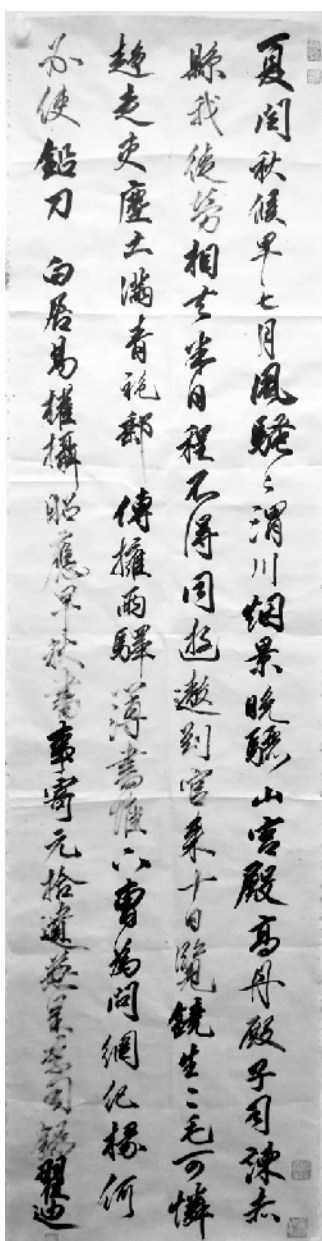 夏閏秋候早七月風騷〻渭川烟景晚驪山宮殿高丹殿子司諫赤
縣我徒勞相去半日程不得同遊遨到官來十日覽鏡生二毛可憐
趨走吏塵土滿青袍郵傳擁兩驛簿書堆六曹為問綱紀掾何
必使鉛刀 白居易權攝昭應早秋書事寄元拾遺兼呈李司錄 翟迪